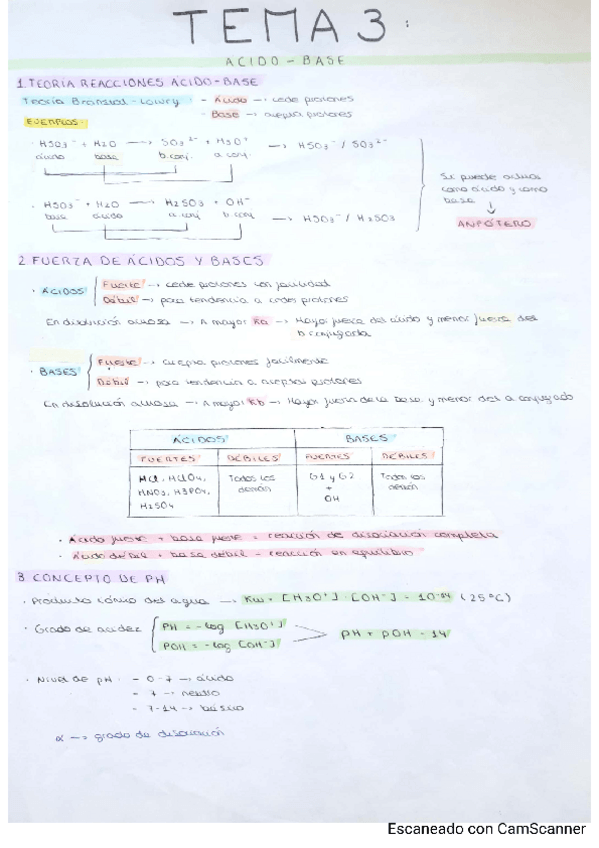 TEMA 3:
ACIDO-BASE
1. TEORIA REACCIONES ACIDO-BASE
Teoría Bronsted-Lowry: - Ácido → cede protones
- Base → acepta protones
EJEMPLOS:
· HSO3⁻ + H2O → SO3²⁻ + H3O⁺ → HSO3⁻ / SO3²⁻
ácido base b.conj. a.conj.
Si puede actuar
como ácido y como
base
↓
ANFÓTERO
· HSO3⁻ + H2O → H2SO3 + OH⁻ → HSO3⁻ / H2SO3
base ácido a.conj b.conj.
2. FUERZA DE ÁCIDOS Y BASES
· ÁCIDOS Fuerte → cede protones con facilidad
Débil → poca tendencia a ceder protones
En disolución acuosa → A mayor Ka → Mayor fuerza del ácido y menor fuerza del
b conjugada
· BASES Fuerte → protones facilmente
Débil → poca tendencia a aceptar protones
En disolución acuosa → A mayor Kb → Mayor fuerza de la base y menor del a conjugado
ÁCIDOS BASES
FUERTES DÉBILES FUERTES DÉBILES
HCl, HClO4, HNO3, H3PO4, H2SO4
Todos los demás
G1 y G2 + OH
Todos los demás
· Ácido fuerte + base fuerte = reacción de disociación completa
· Ácido débil + base débil = reacción en equilibrio
3. CONCEPTO DE PH
· Producto iónico del agua → Kw = [H3O⁺] · [OH⁻] = 10⁻¹⁴ (25ºC)
· Grado de acidez PH = -log [H3O⁺]
POH = -log [OH⁻]
pH + pOH = 14
· Nivel de pH: - 0-7 → ácido
- 7 → neutro
- 7-14 → básico
α → grado de disociación
Escaneado con CamScanner